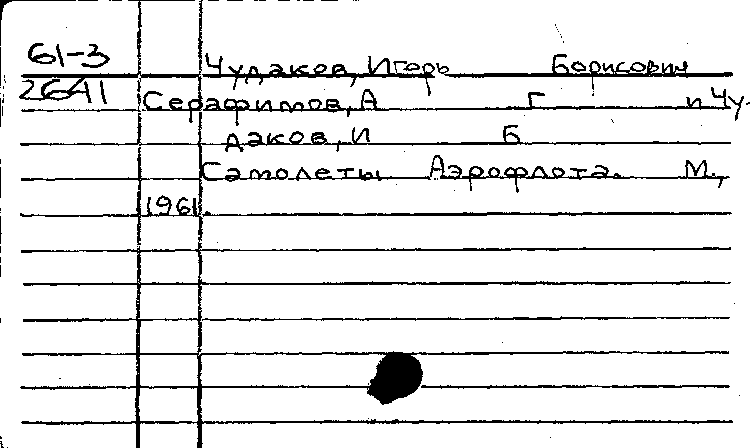 61-3 Чудаков, Игорь Борисович
2641 Серафимов, А Г и Чу-
даков, И Б
Самолеты Аэрофлота. М.,
1961.